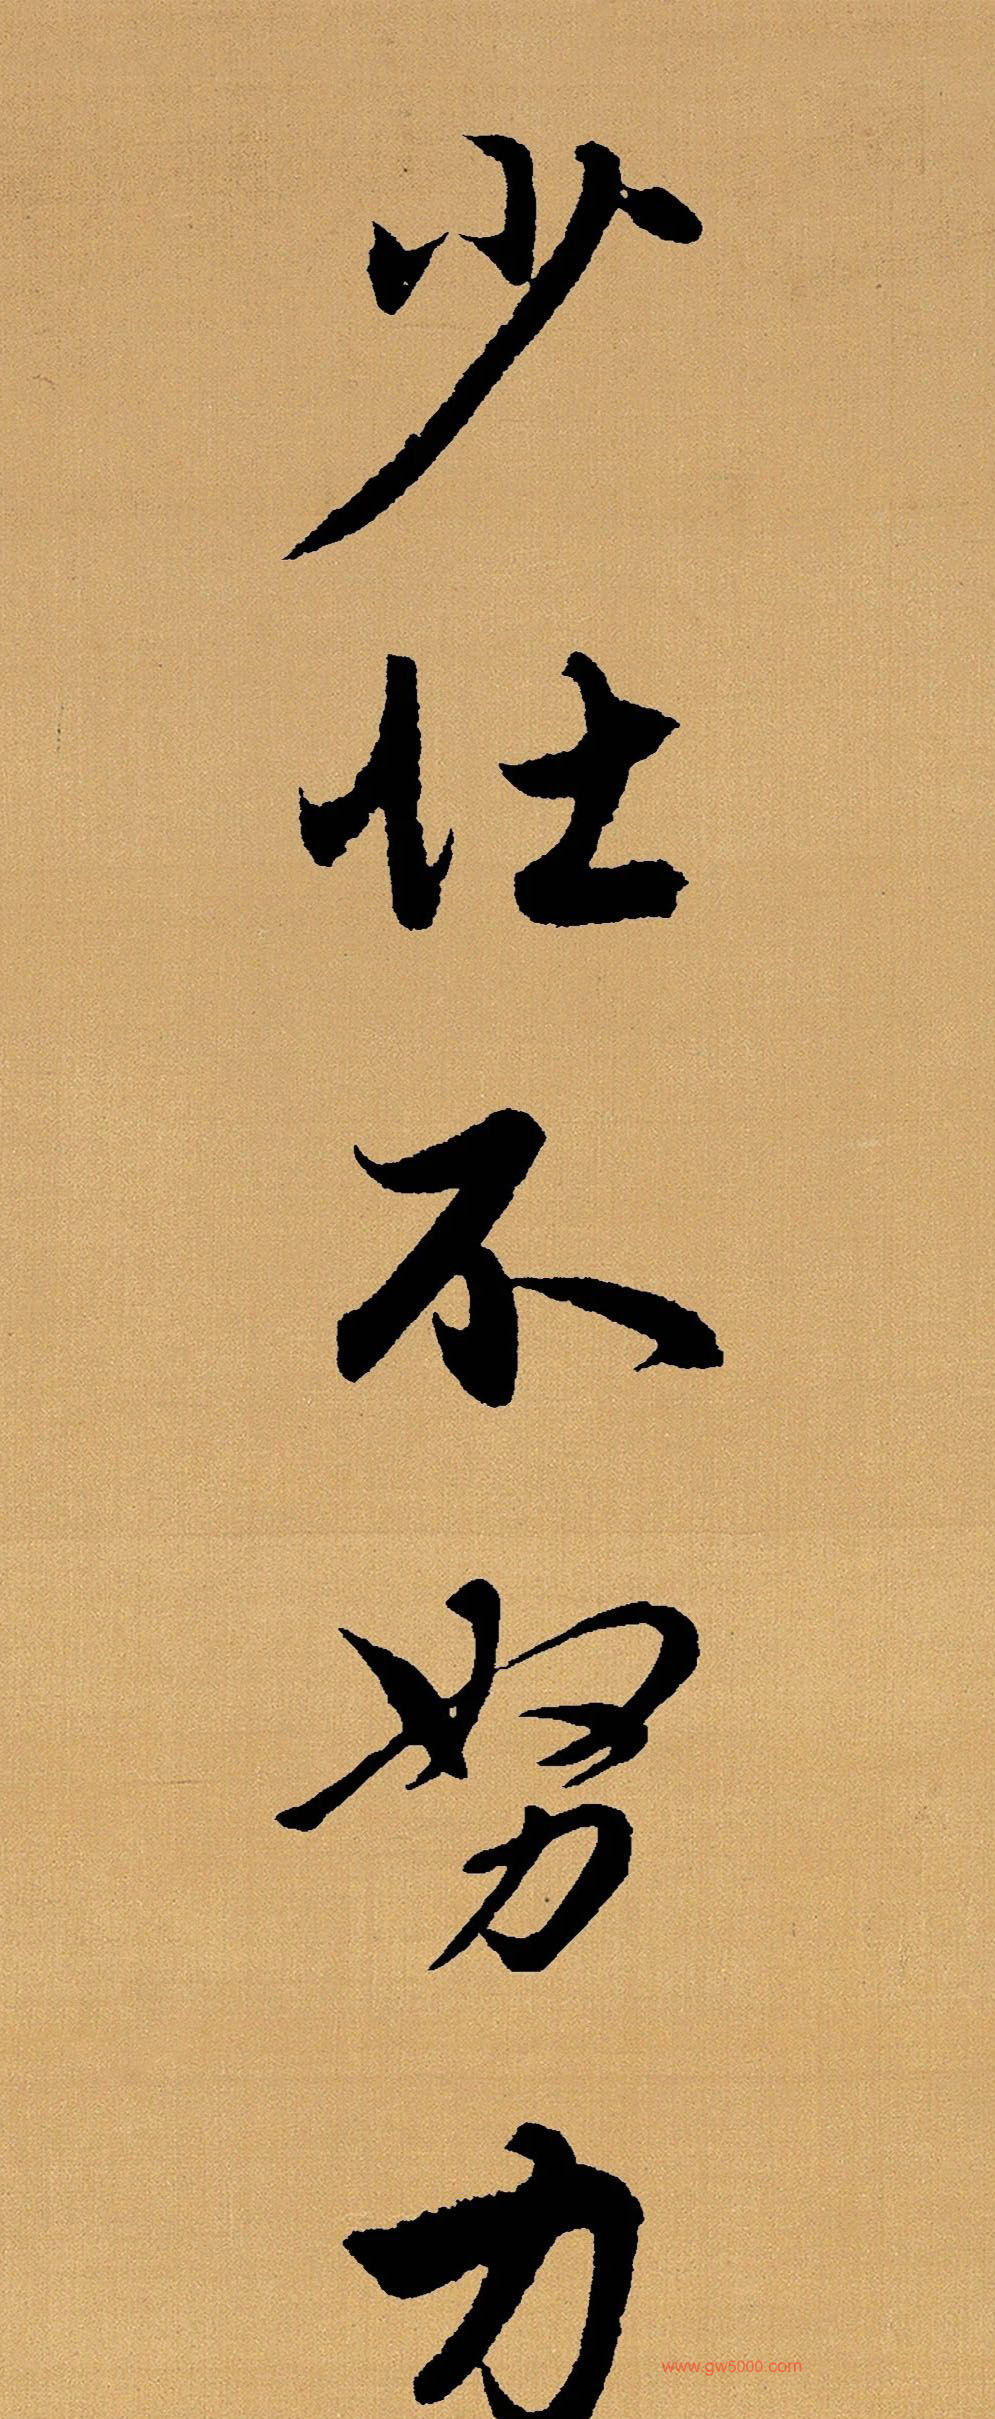 少壮不努力
www.gw5000.com